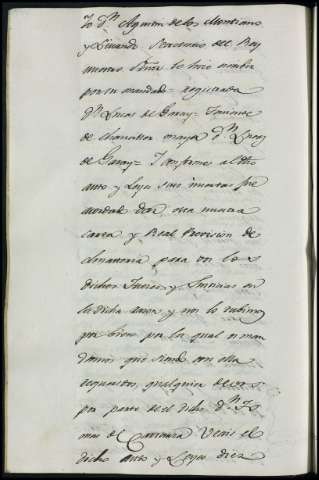 Yo D.n Agustin de los Montiano
y Luiando Secretario del Rey
nuestro Señor la hice escribir
por su mandado = registrada
D.n Lucas de Garay = Teniente
de chanciller mayor D.n Lucas
de Garay = Y conforme al dho
auto y Leyes suso insertas fue
acordado dar esta nuestra
carta y Real Provision de
para vos los
dichos Jueces y Justicias en
la dicha razon y nos lo tubimos
por bien por la qual os man
damos que siendo con ella
requeridos, qualquiera de vos
por parte de el dicho D.n To
mas de Carranza Veais el
dicho auto y Leyes